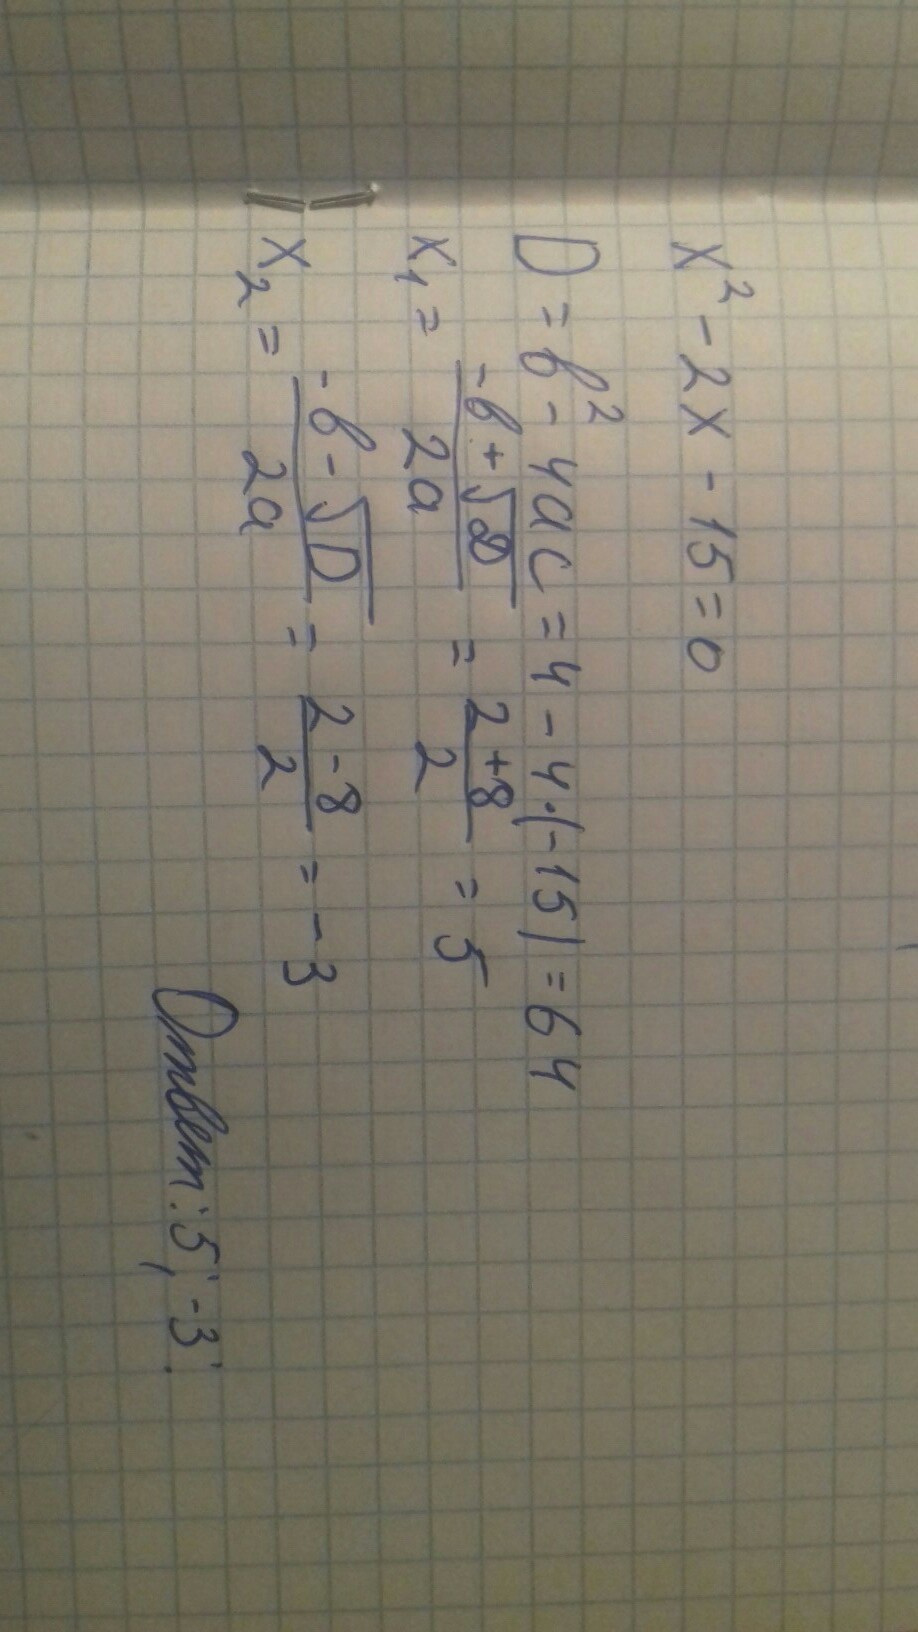 x² - 2x - 15 = 0
D = b² - 4ac = 4 - 4·(-15) = 64
x₁ = (-b + √D)/(2a) = (2 + 8)/2 = 5
x₂ = (-b - √D)/(2a) = (2 - 8)/2 = -3
Ответ: 5; -3.